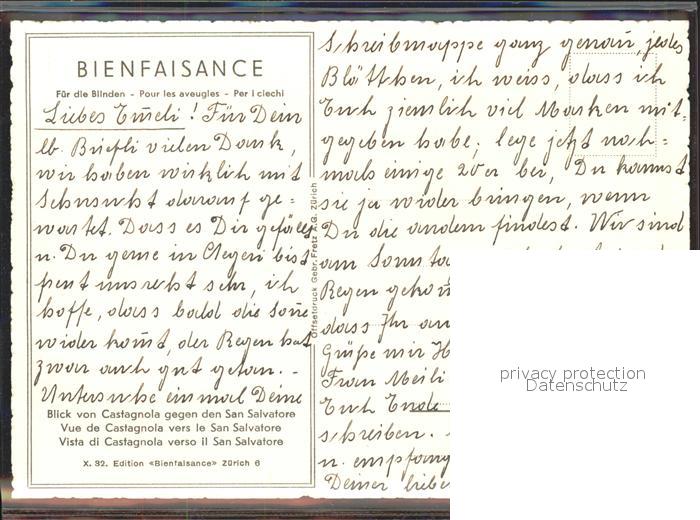 BIENFAISANCE
Für die Blinden - Pour les aveugles - Per i ciechi
Liebes Em̄eli! Für Dein
lb. Briefli vielen Dank,
wir haben wirklich mit
Sehnsucht darauf ge=
wartet. Dass es Dir gefällt
u. Du gerne in Clegen bist
freut uns recht sehr, ich
hoffe, dass bald die Son̄e
wider kom̄t, der Regen hat
zwar auch gut getan. -
Untersuche einmal Deine
Blick von Castagnola gegen den San Salvatore
Vue de Castagnola vers le San Salvatore
Vista di Castagnola verso il San Salvatore
X. 32. Edition «Bienfaisance» Zürich 6
Offsetdruck Gebr. Fretz A.G. Zürich
Schreibmappe ganz genau, jedes
Blättchen, ich weiss, dass ich
Euch ziemlich viel Marken mit=
gegeben habe; lege jetzt noch=
mals einige 20er bei, Du kannst
sie ja wider bringen, wenn
Du die andern findest. Wir sind
am Sonnta
Regen gekom̄
dass Ihr au
Grüße mir H
Frau Meili
Euch Ende
schreiben.
u. empfang
Deiner liebe
privacy protection
Datenschutz